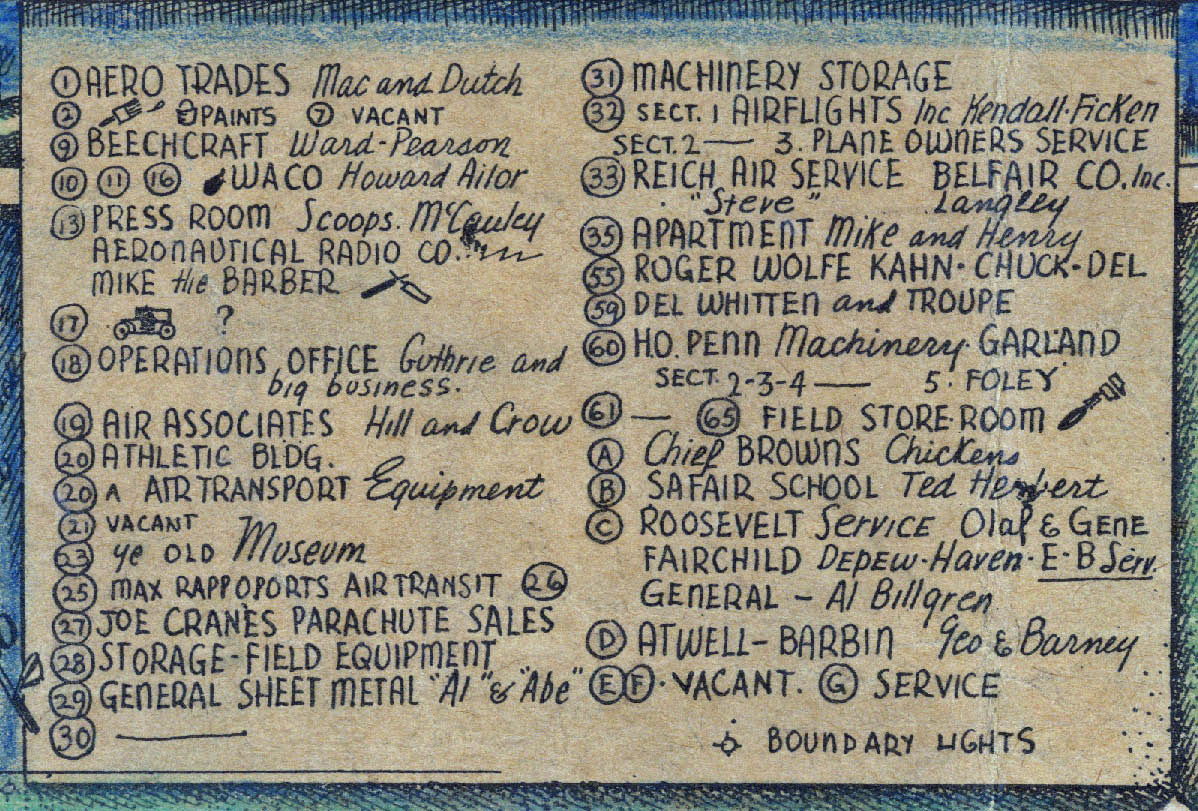 1 AERO TRADES Mac and Dutch
2 PAINTS 7 VACANT
9 BEECHCRAFT Ward-Pearson
10 11 16 WACO Howard Ailor
13 PRESS ROOM Scoops. McCauley
AERONAUTICAL RADIO CO.
MIKE the BARBER
17 ?
18 OPERATIONS OFFICE Guthrie and
big business.
19 AIR ASSOCIATES Hill and Crow
20 ATHLETIC BLDG.
20 A AIR TRANSPORT Equipment
21 VACANT
23 ye OLD Museum
25 MAX RAPPOPORTS AIR TRANSIT 26
27 JOE CRANES PARACHUTE SALES
28 STORAGE-FIELD EQUIPMENT
29 GENERAL SHEET METAL "Al" & "Abe"
30 —
31 MACHINERY STORAGE
32 SECT. 1 AIRFLIGHTS Inc Kendall-Ficken
SECT. 2 — 3. PLANE OWNERS SERVICE
33 REICH AIR SERVICE BELFAIR CO. Inc.
"Steve" Langley
35 APARTMENT Mike and Henry
55 ROGER WOLFE KAHN-CHUCK-DEL
59 DEL WHITTEN and TROUPE
60 H.O. PENN Machinery GARLAND
SECT. 2-3-4 — 5. FOLEY
61 — 65 FIELD STORE-ROOM
A Chief BROWNS Chickens
B SAFAIR SCHOOL Ted Herbert
C ROOSEVELT Service Olaf & GENE
FAIRCHILD DEPEW-Haven-E-B Serv.
GENERAL - Al Billgren
D ATWELL-BARBIN Geo & Barney
E F. VACANT. G SERVICE
BOUNDARY LIGHTS